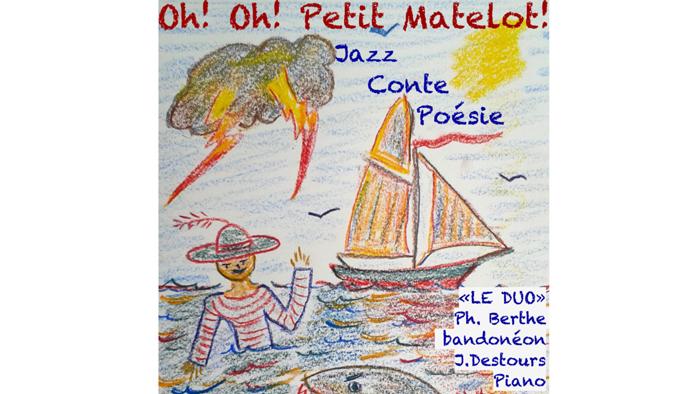 Oh! Oh! Petit Matelot!
Jazz
Conte
Poésie
«LE DUO»
Ph. Berthe
bandonéon
J.Destours
Piano